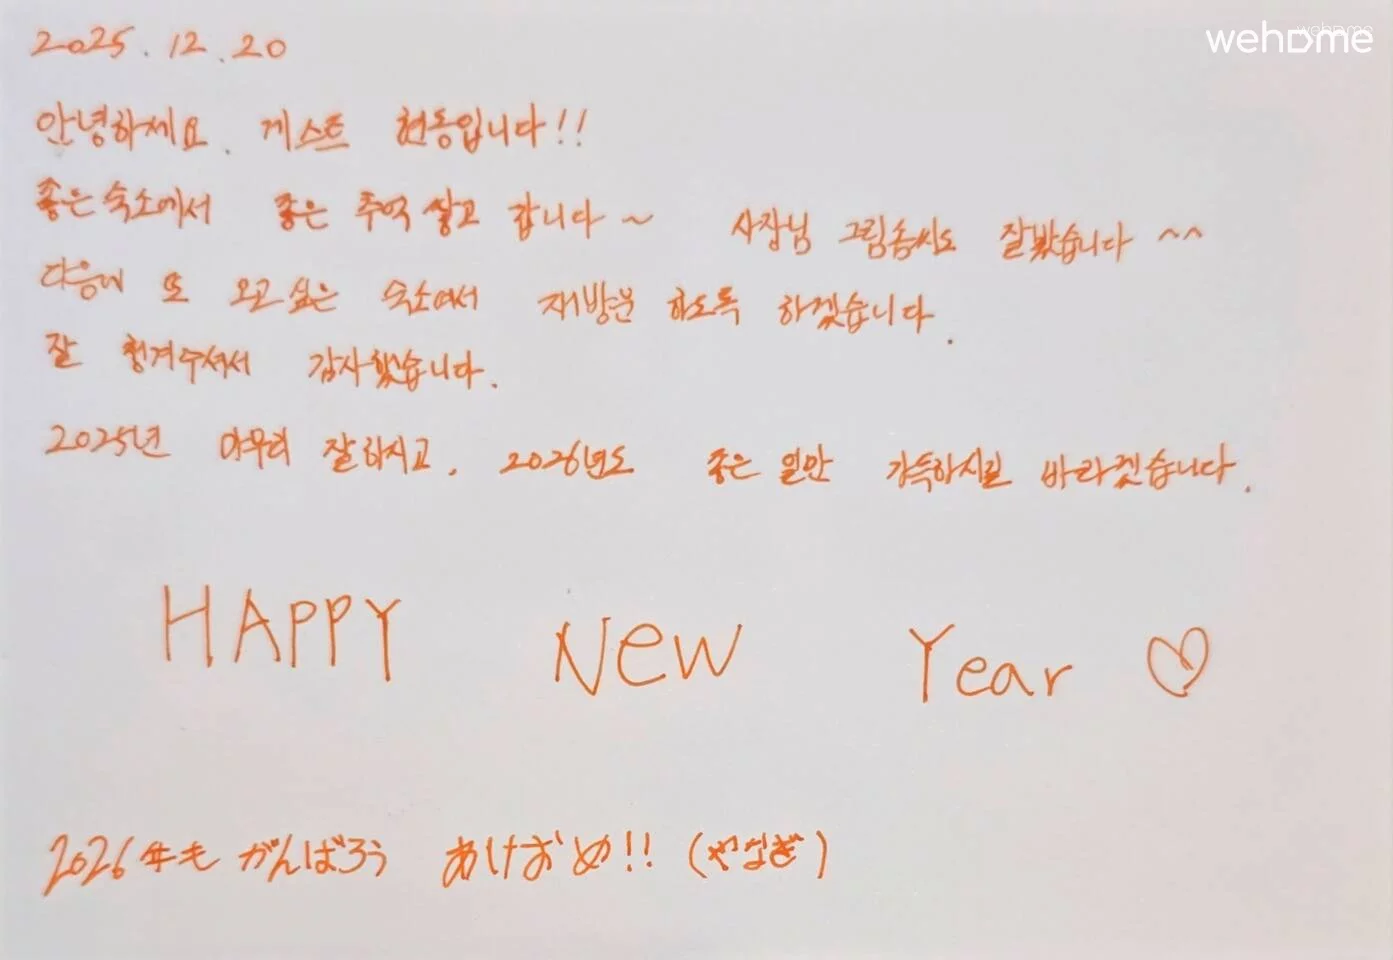 wehome
2025.12.20
안녕하세요. 게스트 현동입니다!!
좋은 숙소에서 좋은 추억 쌓고 갑니다~ 사장님 그림솜씨도 잘봤습니다^^
다음에 또 오고싶은 숙소여서 재방문 하도록 하겠습니다.
잘 챙겨주셔서 감사했습니다.
2025년 마무리 잘하시고, 2026년도 좋은 일만 가득하시길 바라겠습니다.
HAPPY New Year ♡
2026年も がんばろう あけおめ!! (やなぎ)